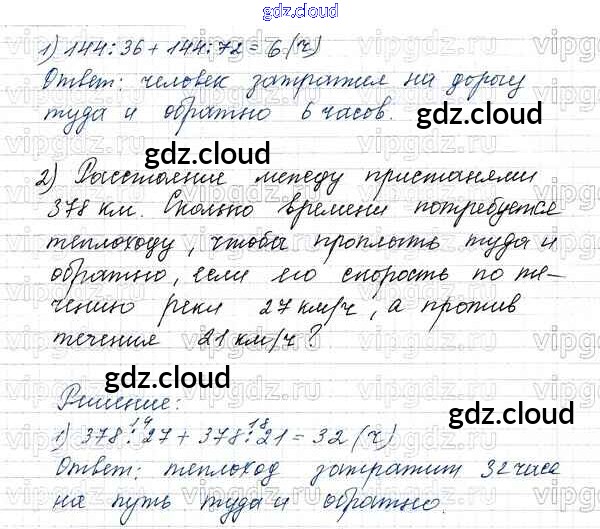 gdz.cloud
1) 144:36 + 144:72 = 6 (ч)
Ответ: человек затратил на дорогу
туда и обратно 6 часов.
gdz.cloud
gdz.cloud
2) Расстояние между пристанями
378 км. Сколько времени потребуется
теплоходу, чтобы проплыть туда и
обратно, если его скорость по те-
чению реки 27 км/ч, а против
течения 21 км/ч?
gdz.cloud
gdz.cloud
Решение:
14 18
1) 378:27 + 378:21 = 32 (ч)
Ответ: теплоход затратит 32 часа
на путь туда и обратно.
gdz.cloud